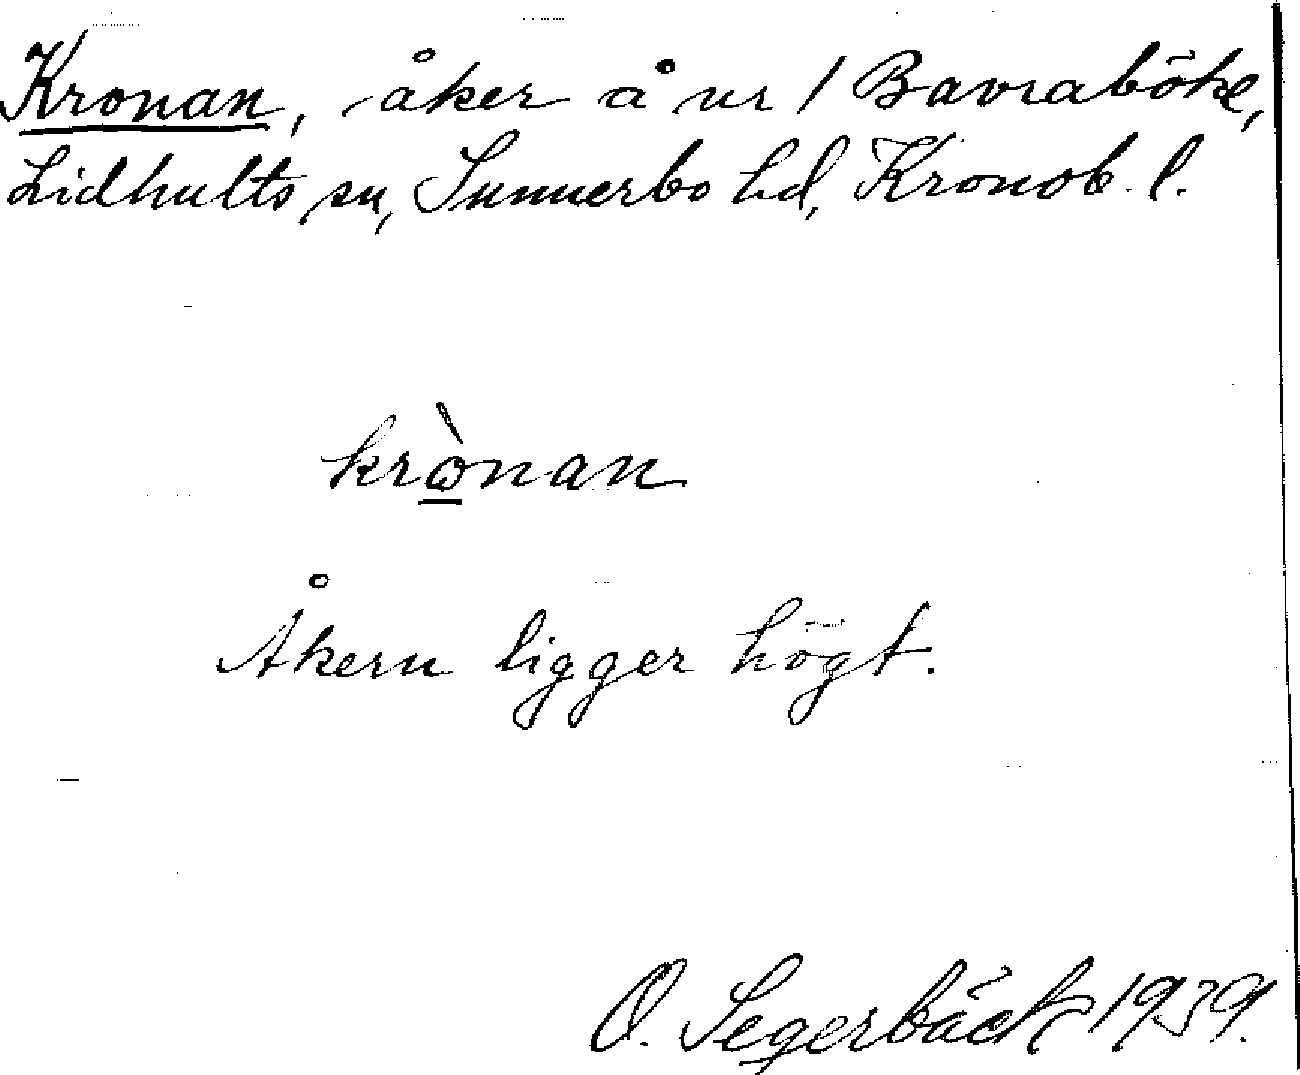 Kronan, åker å nr 1 Bavraböke,
Lidhults sn, Sunnerbo hd, Kronob. l.
krò̱nan
Åkern ligger högt.
O. Segerbäck 1939.